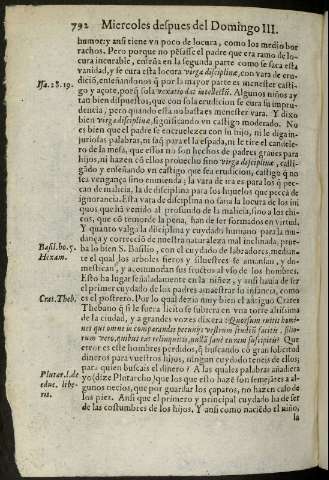 792 Miercoles despues del Domingo III.
humor: y ansi tiene vn poco de locura, como los medio bor
rachos. Pero porque no pẽsasse el padre que era ramo de lo-
cura incurable, enseña en la segunda parte como se saca esta
vanidad, y se cura esta locura virga disciplinæ, con vara de eru-
dició, enseñandonos q̃ por la mayor parte es menester casti-
Isa. 28. 19.
go y açote, porq̃ sola vexatio dat intellectũ. Algunos niños ay
tan bien dispuestos, que con sola erudicion se cura su impru-
dencia, pero quando esta no basta es menester vara. Y dixo
bien virga disciplinæ, significando vn castigo moderado. No
es bien que el padre se encruelezca con su hijo, ni le diga in-
juriosas palabras, ni saq̃ para el la espada, ni le tire el candele-
ro de la mesa, que essos no son hechos de padres graues para
hijos, ni hazen cõ ellos prouecho sino virga disciplinæ, casti-
gado y enseñando vn castigo que sea erudicion, castigo q̃ no
sea vengança sino enmienda; la vara de ira es para los q̃ pec-
can de malicia, la de disciplina para los hijuelos que pecca de
ignorancia. Esta vara de disciplina no sana la locura de los ini
quos que hã venido al profundo de la malicia, sino a los chi-
cos, que cõ temor de la pena, han de ser formados en virtud.
Y quanto valga la disciplina y cuydado humano para la mu-
dança y correciõ de nuestra naturaleza mal inclinada, prue-
Basil. ho. 5.
Hexam.
ba lo bien S. Basilio, con el cuydado de labradores median-
te el qual los arboles fieros y siluestres se amansan, y do-
mestican, y acomodan sus fructos al vso de los hombres.
Esto ha lugar señaladamente en la niñez, y ansi hauia de ser
el primer cuydado de los padres amaestrar su infancia, como
Crat. Theb.
es el postrero. Por lo qual dezia muy bien el antiguo Crates
Thebano q̃ si le fuera licito se subiera en vna torre altissima
de la ciudad, y a grandes vozes dixera: Quorsum ruitis homi-
nes qui omne in comparandis pecunijs vestrum studiũ facitis, filio-
rum vero, quibus eas relinquitis, nullã sane curam suscipitis? Que
error es este hombres perdidos, q̃ buscando cõ gran solicitud
dineros para vuestros hijos, ningun cuydado teneis de ellos,
para quien buscais el dinero? A las quales palabras añadiera
Plutar. l. de
educ. libe-
ris.
yo (dize Plutarcho) que los que esto hazẽ son semejantes a al-
gunos necios, que por guardar los çapatos, no hazen caso de
los pies. Ansi que el primero y principal cuydado ha de ser
de las costumbres de los hijos. Y ansi como naciẽdo el niño,
la